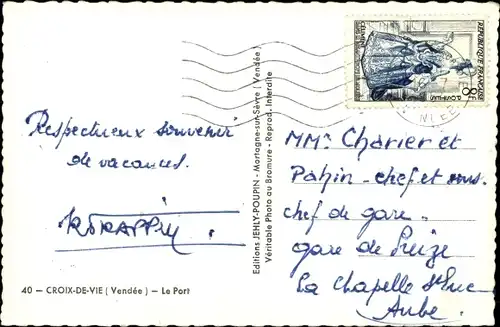 Respectueux souvenir
de vacances.
40 - CROIX-DE-VIE ( Vendée ) - Le Port
Editions JEHLY-POUPIN - Mortagne-sur-Sèvre ( Vendée )
Véritable Photo au Bromure - Reprod. Interdite
REPUBLIQUE FRANÇAISE
8F
MMrs Charier et
Papin - chef et sous.
chef de gare.
gare de Preize
La Chapelle St Luc
Aube.